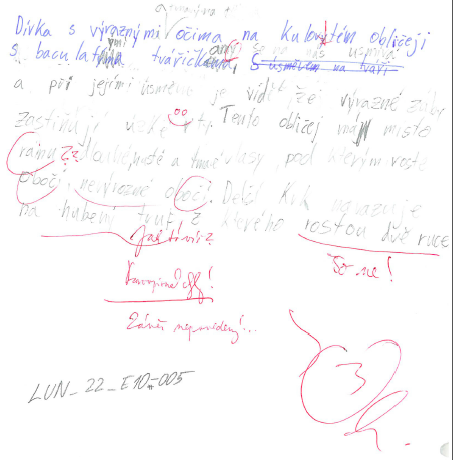 Dívka s výraznými očima na kulovitém obličeji
s baculatými tvářičkami, se na nás usmívá s úsměvem na tváři
a při jejími úsměvu je vidět že výrazné zuby
zastiňují úzké rty. Tento obličej má místo
rámu dlouhé, husté a tmavé vlasy, pod kterým roste
obočí, nevýrazné obočí. Delší krk navazuje
na hubený trup, z kterého rostou dvě ruce
Jak to víš?
To ne!
Závěr neprovedený!...
3
LUN_22_E10_005